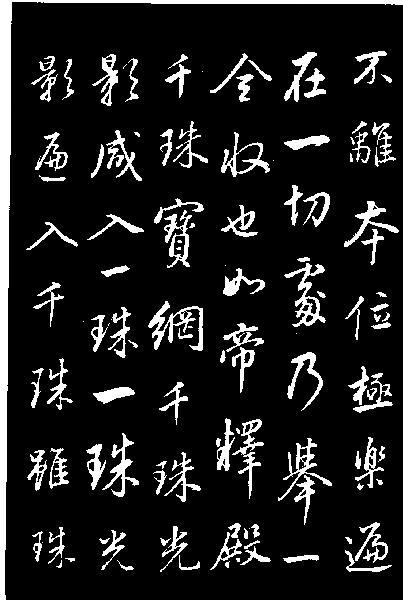 不離本位極樂遍
在一切處乃舉一
全收也如帝釋殿
千珠寶網千珠光
影咸入一珠一珠光
影遍入千珠雖珠